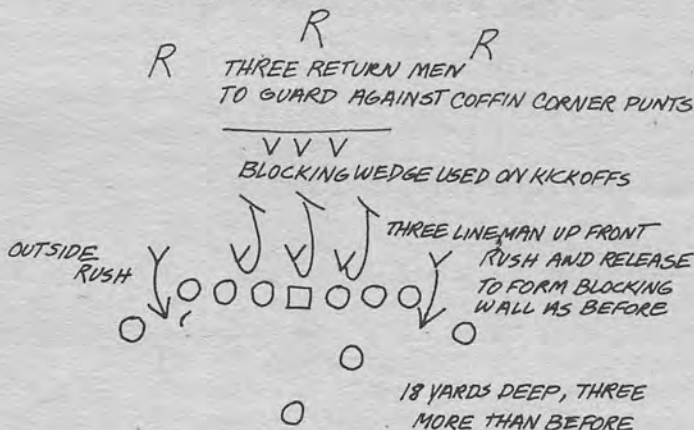 R
R
R
THREE RETURN MEN
TO GUARD AGAINST COFFIN CORNER PUNTS
V V V
BLOCKING WEDGE USED ON KICKOFFS
OUTSIDE
RUSH
THREE LINEMAN UP FRONT
RUSH AND RELEASE
TO FORM BLOCKING
WALL AS BEFORE
18 YARDS DEEP, THREE
MORE THAN BEFORE